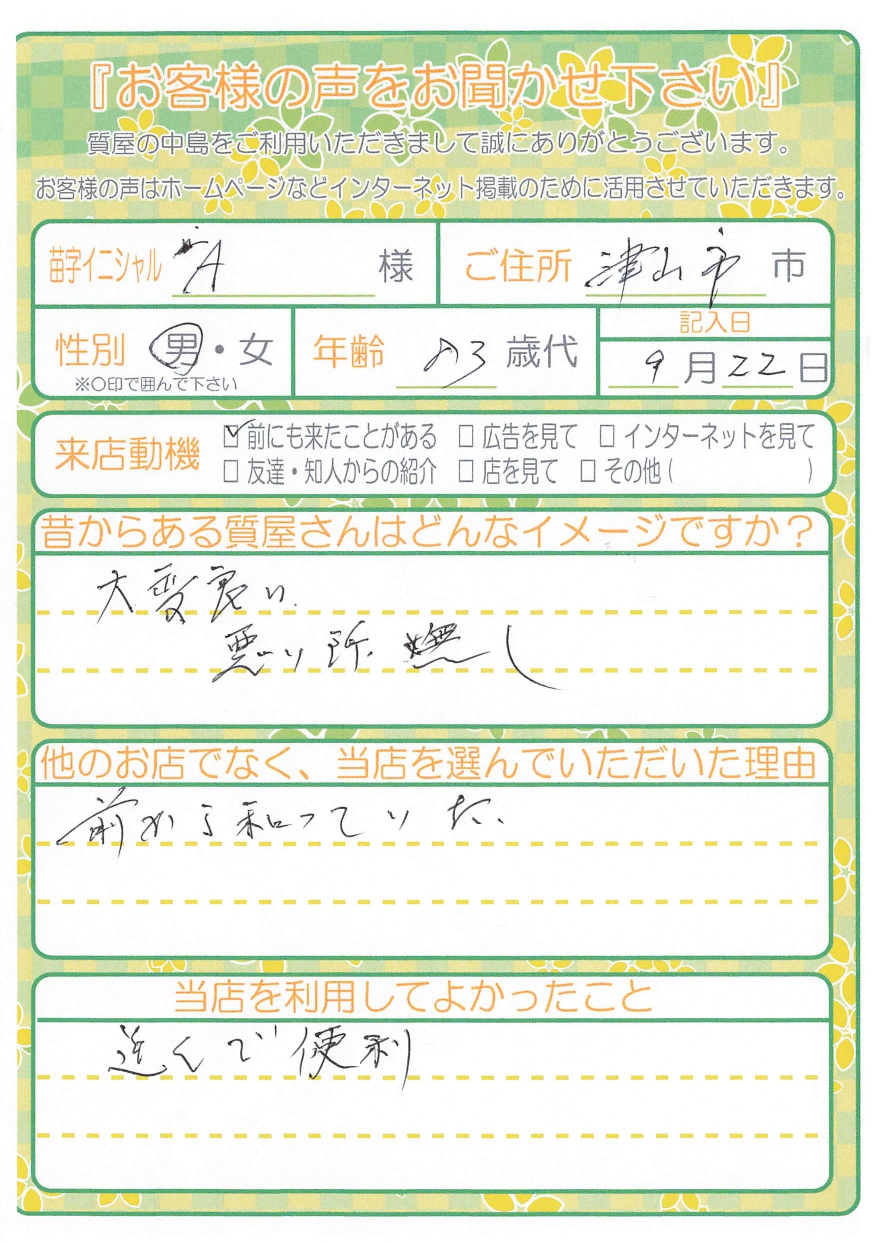 『お客様の声をお聞かせ下さい』
質屋の中島をご利用いただきまして誠にありがとうございます。
お客様の声はホームページなどインターネット掲載のために活用させていただきます。
苗字イニシャル A 様 ご住所 津山市 市
性別 男・女 年齢 83 歳代 記入日
※○印で囲んで下さい 9月22日
来店動機 ☑前にも来たことがある □広告を見て □インターネットを見て
□友達・知人からの紹介 □店を見て □その他( )
昔からある質屋さんはどんなイメージですか？
大変良い
悪い所 無し
他のお店でなく、当店を選んでいただいた理由
前から知っていた、
当店を利用してよかったこと
近くで便利